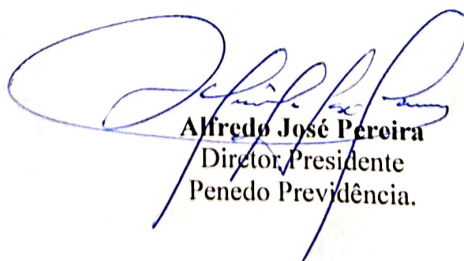 Alfredo José Pereira
Diretor Presidente
Penedo Previdência.